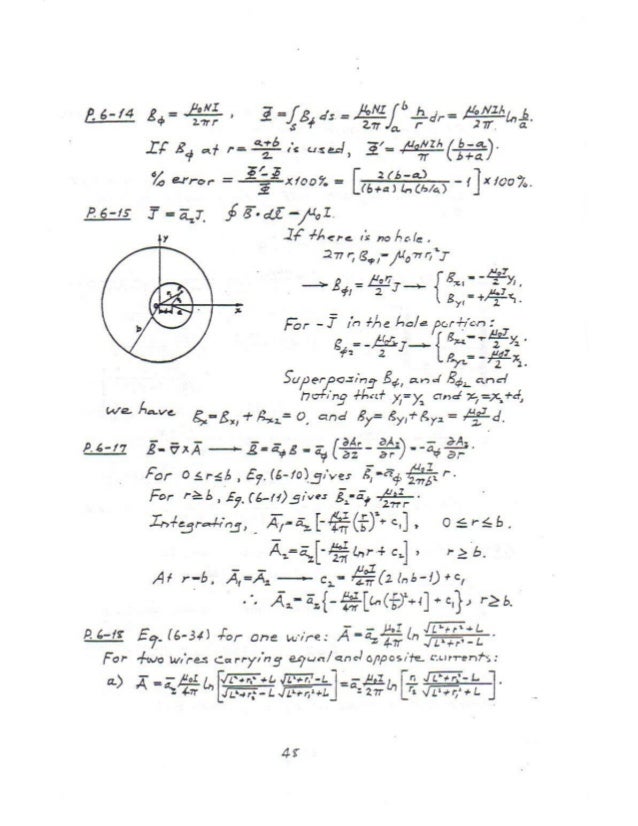 P.6-14 B_φ = μ₀NI/2πr , Φ = ∫_S B_φ ds = μ₀NI/2π ∫_a^b h/r dr = μ₀NIh/2π ln b/a.
If B_φ at r = (a+b)/2 is used, Φ' = μ₀NIh/π ((b-a)/(b+a)).
% error = (Φ'-Φ)/Φ × 100% = [2(b-a)/((b+a) ln(b/a)) - 1] × 100%.
P.6-15 J̄ = ā_z J, ∮ B̄·dl̄ = μ₀I.
If there is no hole,
2πr₁B_φ1 = μ₀πr₁²J
→ B_φ1 = μ₀r₁/2 J → { B_x1 = -μ₀J/2 y₁,
B_y1 = +μ₀J/2 x₁.
For -J̄ in the hole portion:
B_φ2 = -μ₀r₂/2 J → { B_x2 = +μ₀J/2 y₂,
B_y2 = -μ₀J/2 x₂.
y
x
b
Superposing B_φ1 and B_φ2 and
noting that y₁=y₂ and x₁=x₂+d,
we have B_x = B_x1 + B_x2 = 0, and B_y = B_y1 + B_y2 = μ₀J/2 d.
P.6-17 B̄ = ∇̄×Ā → B̄ = ā_φ B = ā_φ (∂A_r/∂z - ∂A_z/∂r) = -ā_φ ∂A_z/∂r.
For 0≤r≤b, Eq.(6-10) gives B̄₁ = ā_φ μ₀I/2πb² r.
For r≥b, Eq.(6-11) gives B̄₂ = ā_φ μ₀I/2πr.
Integrating, Ā₁ = ā_z [-μ₀I/4π (r/b)² + c₁], 0≤r≤b.
Ā₂ = ā_z [-μ₀I/2π ln r + c₂], r≥b.
At r=b, Ā₁=Ā₂ → c₂ = μ₀I/4π (2 ln b - 1) + c₁
∴ Ā₂ = ā_z {-μ₀I/4π [ln(r/b)² + 1] + c₁}, r≥b.
P.6-18 Eq.(6-34) for one wire: Ā = ā_z μ₀I/4π ln (√(L²+r²)+L)/(√(L²+r²)-L).
For two wires carrying equal and opposite currents:
a) Ā = ā_z μ₀I/4π ln [(√(L²+r₂²)+L)/(√(L²+r₂²)-L) (√(L²+r₁²)-L)/(√(L²+r₁²)+L)] = ā_z μ₀I/2π ln [r₁/r₂ (√(L²+r₂²)+L)/(√(L²+r₁²)+L)].
48